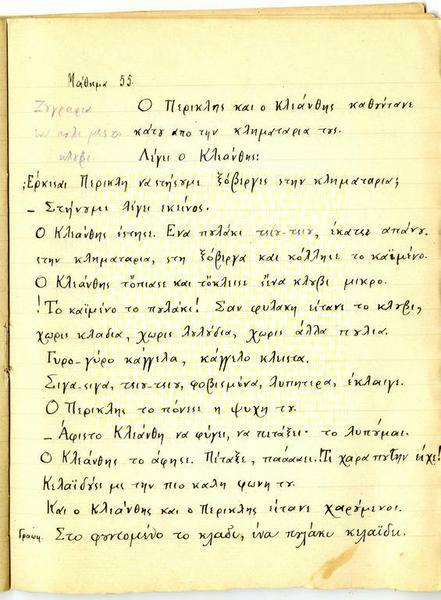 Μάθημα 55.
Ζωγραφια
Ο Περικλης και ο Κλεάνθης καθόντανε
ένα πυλι μες το
κάτω απο την κληματαρια τυς.
κλυβι.
Λέγει ο Κλεάνθης:
;Ερκεσαι Περικλη να στήσυμε ξόβεργες στην κληματαρια;
– Στήνυμε λέγει εκείνος.
Ο Κλεάνθης έστησε. Ενα πυλάκι τσιυ-τσιυ, έκατσε απάνυ
στην κληματαρια, στη ξόβεργα και κόλλησε το καϊμένο.
Ο Κλεάνθης τόπιασε και τόκλεισε σ'ένα κλυβι μικρο.
!Το καϊμένο το πυλάκι! Σαν φυλακη είτανε το κλυβι,
χωρις κλαδια, χωρις λυλύδια, χωρις άλλα πυλια.
Γυρο-γύρο κάγγελα, κάγγελο κλειστα.
Σιγα-σιγα, τσιυ-τσιυ, φοβισμένα, λυπητερα, έκλαιγε.
Ο Περικλης το πόνεσε η ψυχη τυ.
– Άφιστο Κλεάνθη να φύγει, να πετάξει· το λυπύμαι.
Ο Κλεάνθης το άφησε. Πέταξε, πάααει..!Τι χαρα πυταν είχε!
Κελαϊδύσε με την πιο καλη φωνη τυ.
Και ο Κλεάνθης κι ο Περικλης είτανε χαρύμενοι.
Γραφη. Στο φυντομένο το κλαδι, ένα πυλάκι κελαϊδι.